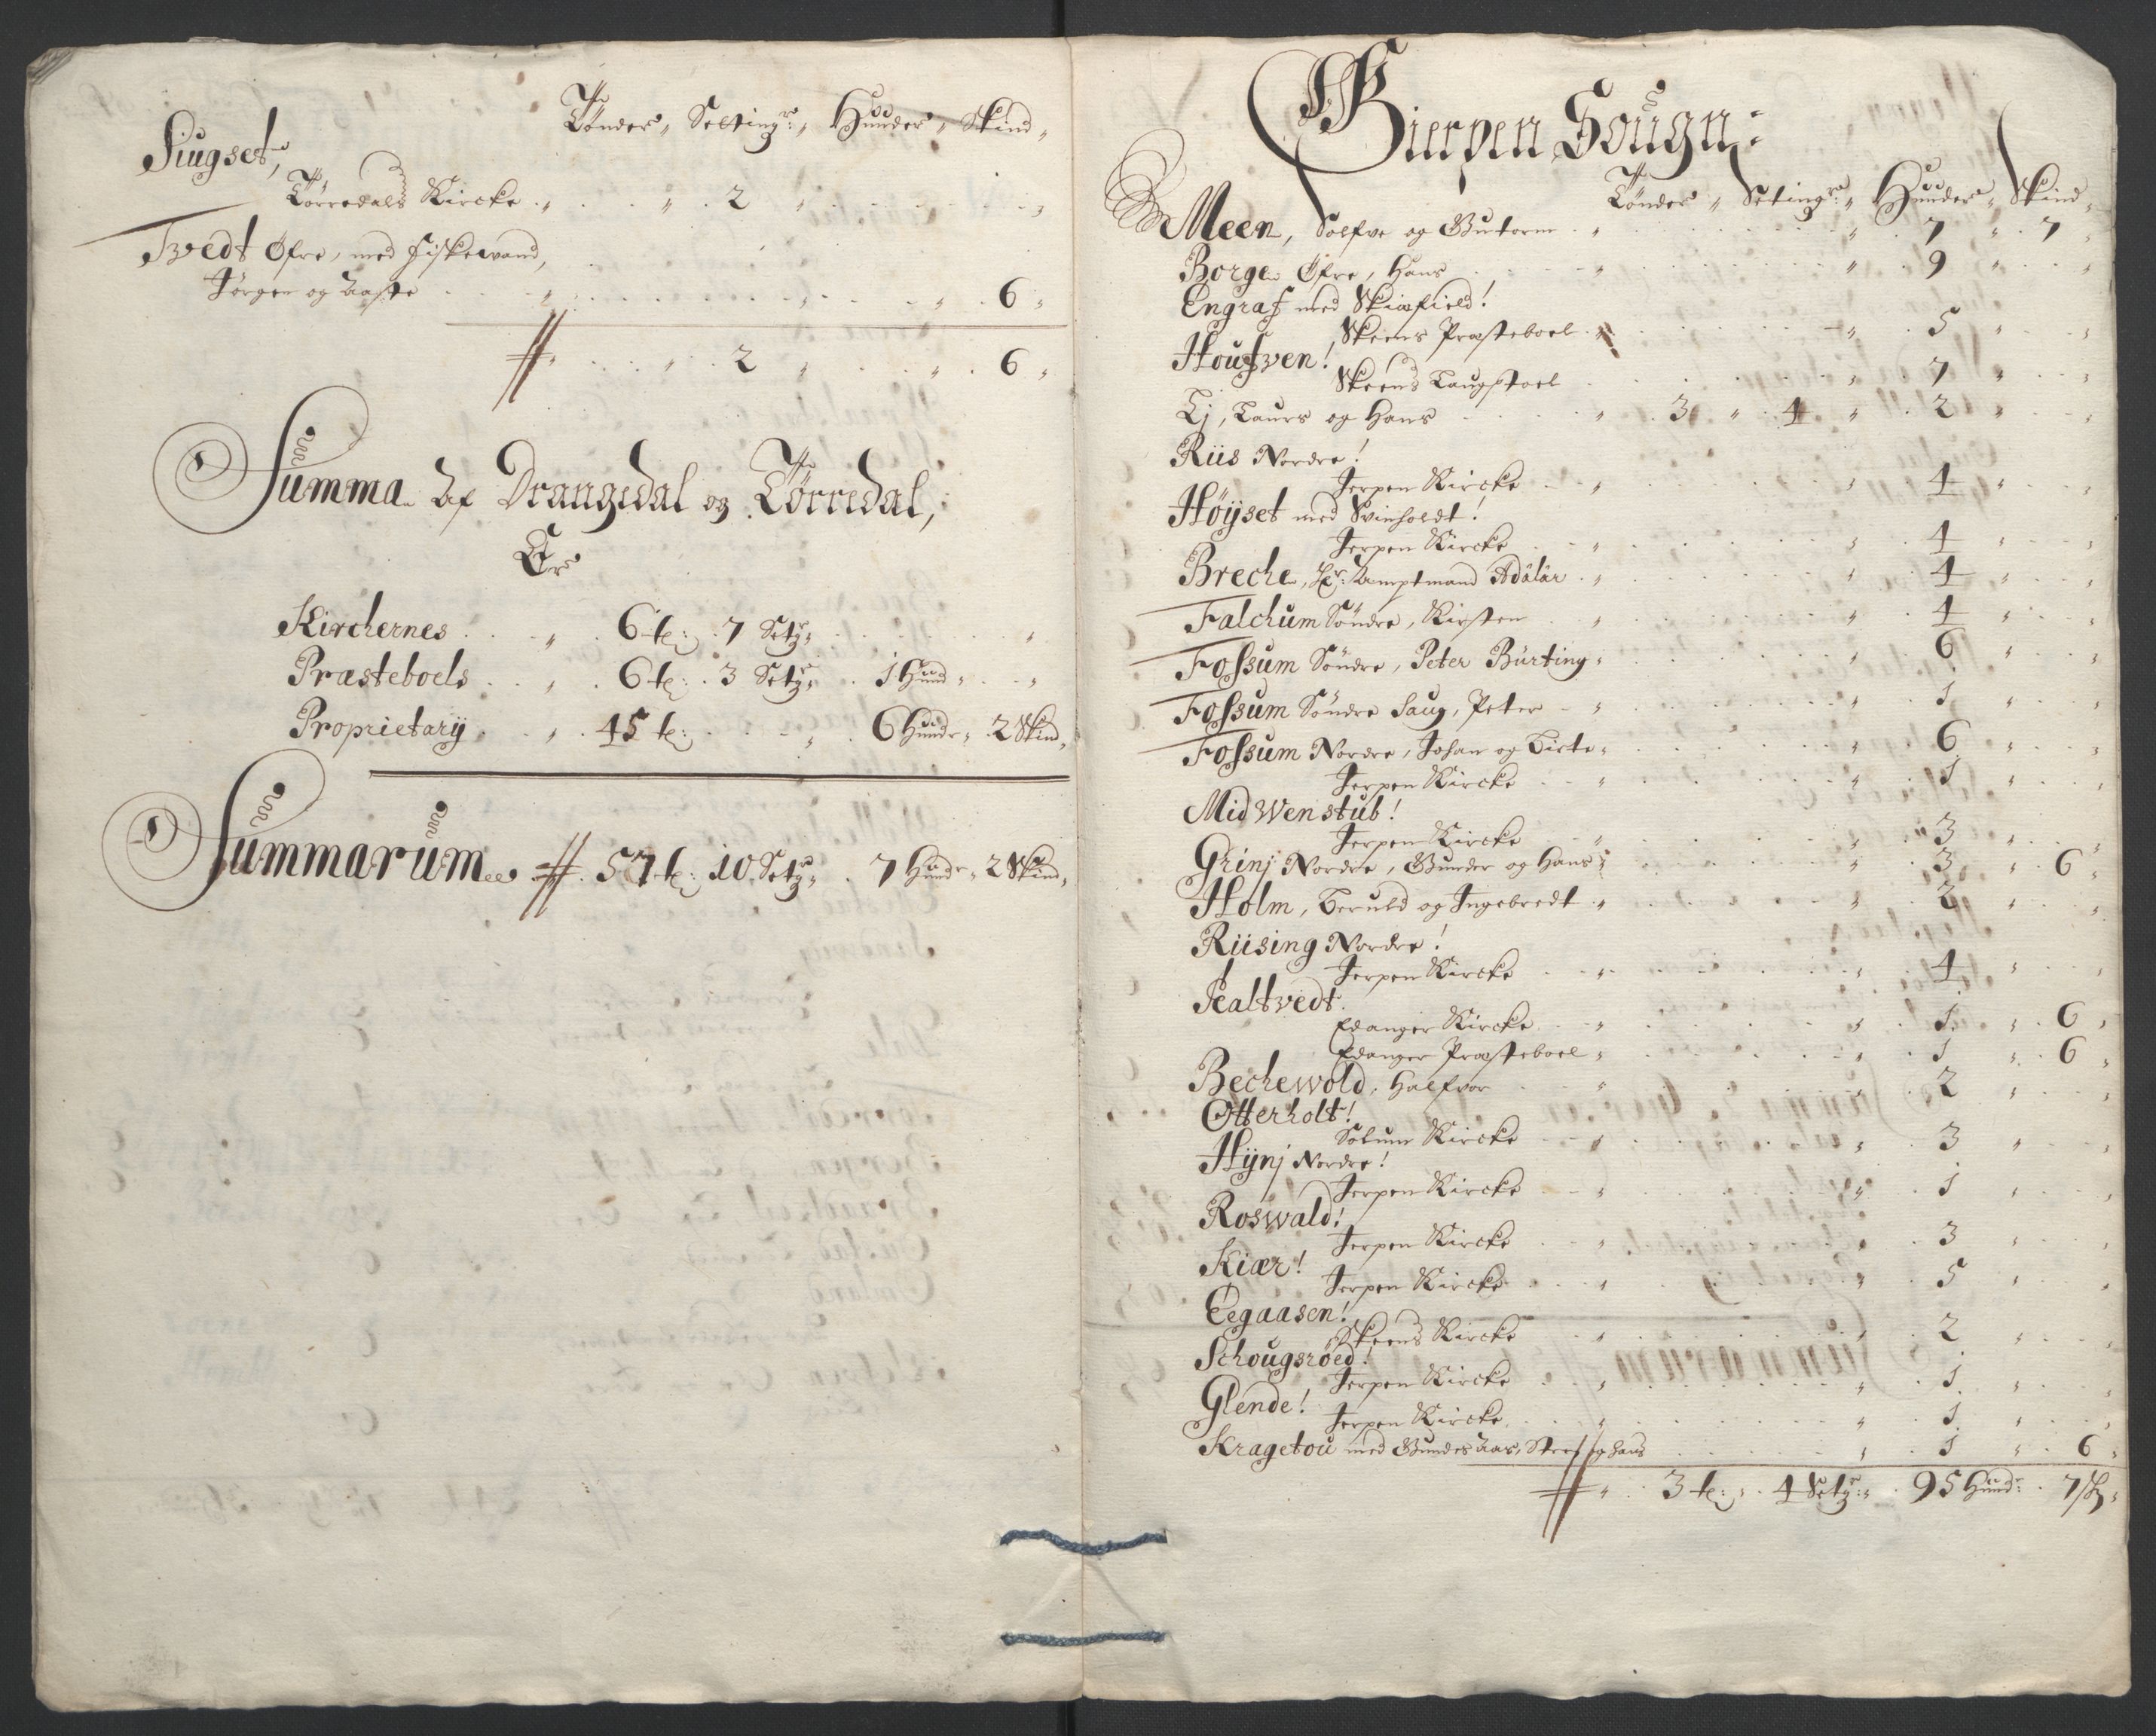 Tönder, Setting:, Huuder, Skind,
Siugset,
Törredals Kircke . 2
Tvedt Øfre, med Fiskevand,
Jörgen og Aaste . 6
2 . 6
Summa Af Drangedal og Törredal,
Er
Kirchernes . 6 t: 7 Setg:
Præsteboels . 6 t: 3 Setg: 1 Hud
Proprietarÿ . 45 t: 6 Hudr, 2 Skind,
Summarum 57 t: 10 Setg: 7 Hudr, 2 Skind,
Gierpen Sougn:
Tönder, Seting:, Huuder, Skind,
Meen, Solfve og Gutorm . 7 . 7
Borge Øfre, Hans . 9
Engraf med Skiefield!
Skeens Præsteboel . 5
Houfven!
Skeens Laugstoel . 7
Lj, Laurs og Hans . 3 . 4 . 2
Riis Nordre!
Jerpen Kircke . 4
Höÿset med Svinholdt!
Jerpen Kircke . 4
Breche, Hr: Amptmand Adälär . 4
Falchum Söndre, Kirsten . 4
Fossum Söndre, Peter Bürting . 6
Fossum Söndre Saug, Peter . 1
Fossum Nordre, Johan og Birte . 6
Jerpen Kircke . 1
Mid Wenstub!
Jerpen Kircke . 3
Grinj Nordre, Gunder og Hans . 3 . 6
Holm, Beruld og Ingebredt . 2
Riising Nordre!
Jerpen Kircke . 4
Realtvedt.
Edanger Kircke . 1 . 6
Edanger Præsteboel . 1 . 6
Bechewold, Halfvor . 2
Otterholt!
Solum Kircke . 3
Hÿnj Nordre!
Jerpen Kircke . 1
Roswald!
Jerpen Kircke . 3
Kiær!
Jerpen Kircke . 5
Eegaasen!
Skeens Kircke . 2
Schougsroed!
Jerpen Kircke . 1
Glende!
Jerpen Kircke . 1
Kragetou med Gundesaas, Steen og Hans . 1 . 6
3 t: 4 Setg: 95 Hud: 7 sk